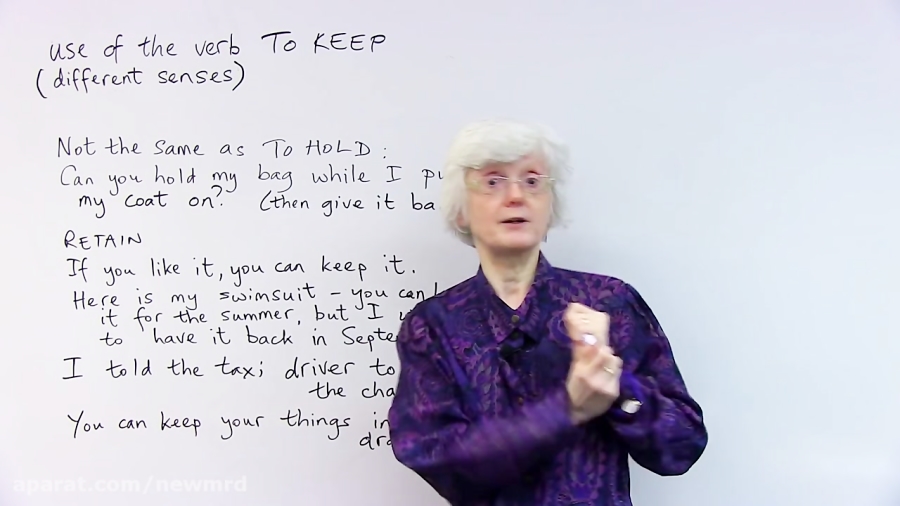 use of the verb TO KEEP
(different senses)
Not the same as TO HOLD:
Can you hold my bag while I
my coat on? (then give it
RETAIN
If you like it, you can keep it.
Here is my swimsuit - you can
it for the summer, but I
to have it back in
I told the taxi driver to
the
You can keep your things in
aparat.com/newmrd